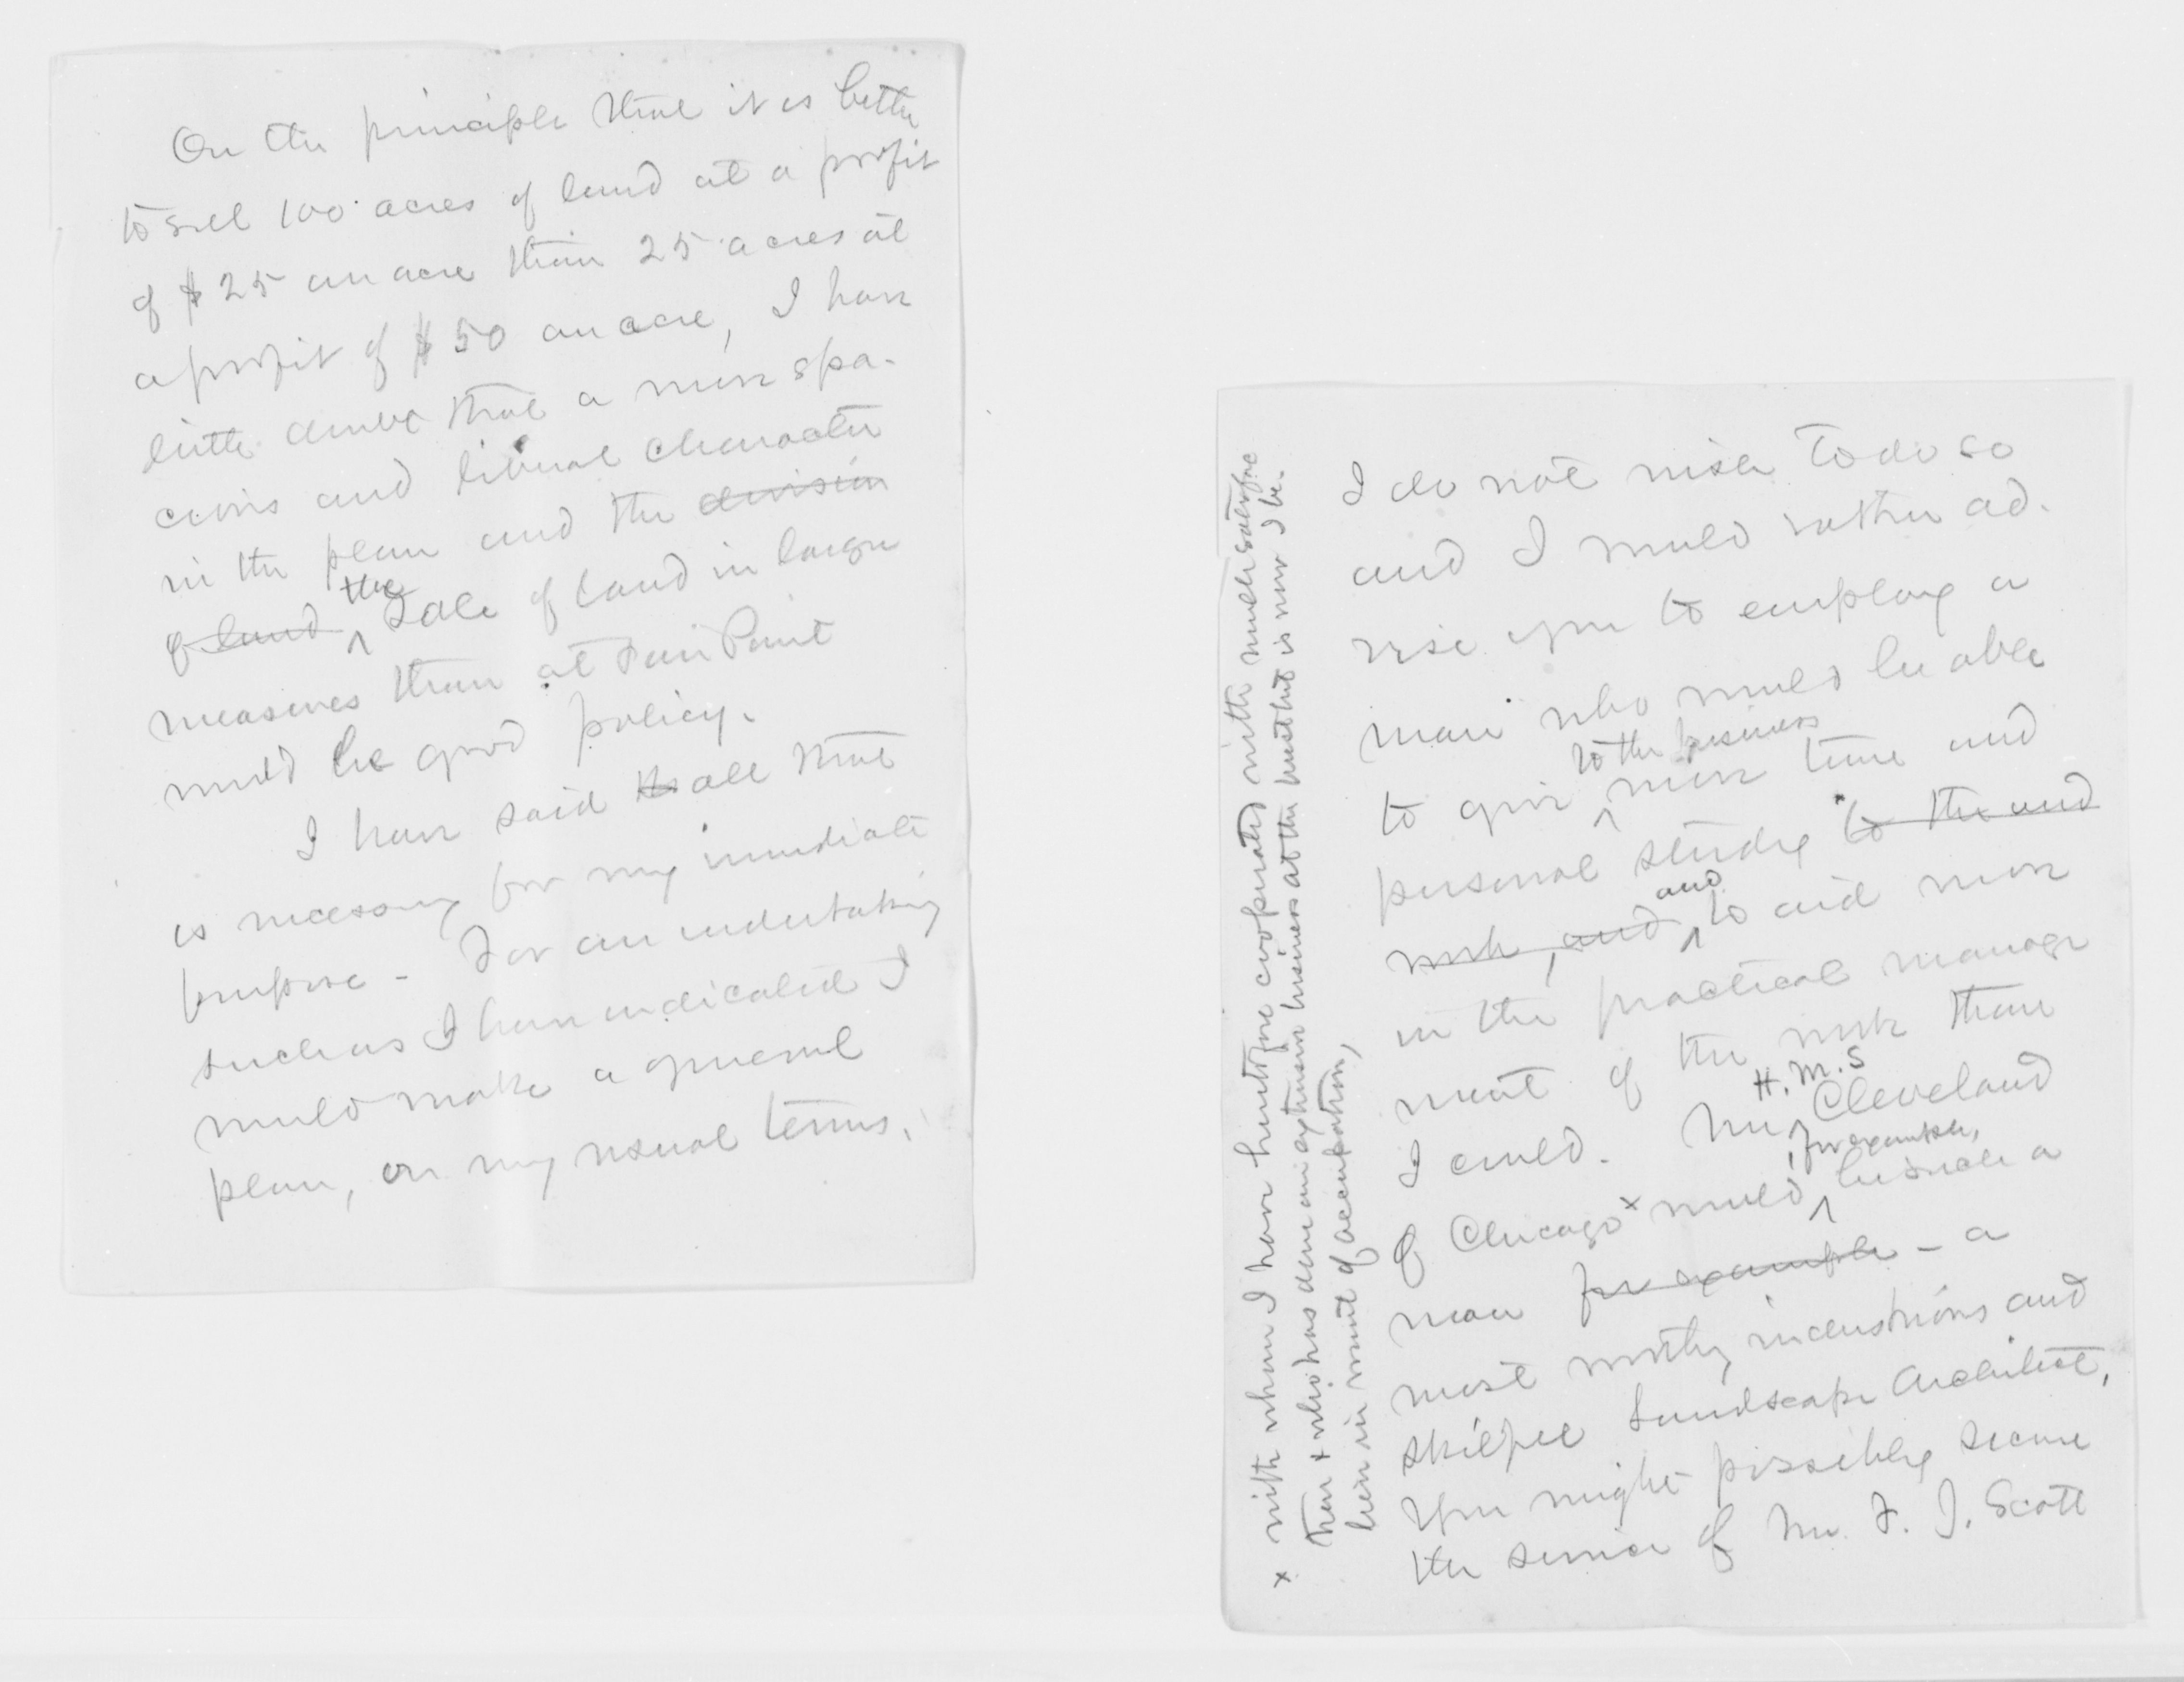 On the principle that it is better
to sell 100 acres of land at a profit
of $25 an acre than 25 acres at
a profit of $50 an acre, I have
little doubt that a more spa-
cious and liberal character
in the plan and the division
of land the sale of land in larger
measures than at Fair Point
would be good policy.
I have said th all that
is necessary for my immediate
purpose - For an undertaking
such as I have indicated I
would make a general
plan, on my usual terms.
I do not wish to do so
and I would rather ad-
vise you to employ a
man who would be able
to the business
to give more time and
personal study to the and
work, and and to aid more
in the practical manage
ment of the work than
H. W. S
I could. Mr Cleveland
for example,
of Chicago x would be such a
man for example - a
most worthy, industrious and
skilful Landscape Architect,
You might possibly secure
the service of Mr. F. J. Scott
x with whom I have heretofore cooperated with much satisfac
tion & who has done an extensive business at the west but is now I be-
lieve in want of occupation,